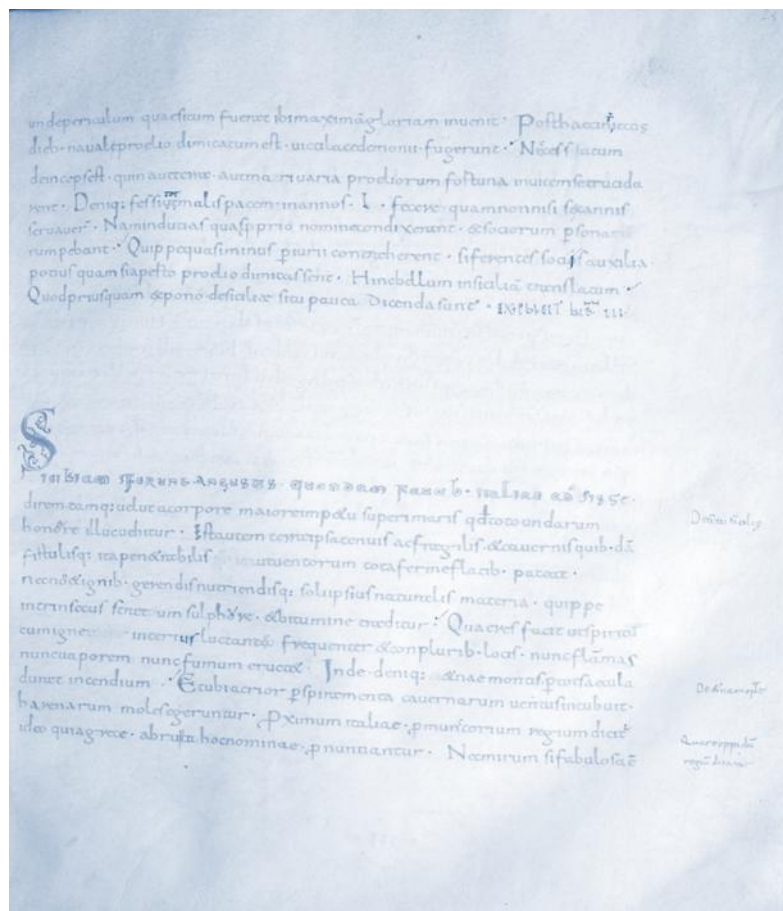 undepericulum quaesitum fuerat ibimaximāgloriam inuenit · Posthaec
dieb· nauali proelio dimicatum est · uicta lacedemonii fugerunt · Necess
deinceps est · quin aut terrae · aut mari uaria proeliorum fortuna inuicem se trucida
rent · Deniq; fessi malis pacem in annos · L · fecere quam nonnisi sex annis
seruauer̄ · Nam inducias quas pprio nomine condixerant · ex sociorum psona
rumpebant · Quippe quasi minus piurii contraherent · si ferentes sociis auxilia
potius quam si aperto proelio dimicassent · Hinc bellum in siciliā translatum
Quod priusquam expono de siciliae situ pauca dicenda sunt ·
S
iciliam ferunt angustis · quondam faucib· italiae adhesisse
dirempamq; uelut a corpore maiore impetu superi maris qd toto undarum
honere illuc uehitur · Est autem terra ipsa tenuis ac fragilis · & cauernis quib· dā
fistulisq; ita penetrabilis uentorum tota ferme flatib· pateat ·
necnō & ignib· gerendis nutriendisq; soli ipsius naturalis materia · quippe
intrinsecus sulphure · & bitumine traditur · Quae res facit ut spiritu
cum igne inter luctante frequenter & conplurib· locis · nunc flāmas
nunc uaporem nunc fumum eructet · Inde deniq; aetnae montis p tot saecula
durat incendium · Et ubi acrior p spiramenta cauernarum uentus incubuit ·
harenarum moles egeruntur · Pximum italiae · pmuntorium regium dicit̄
ideo quia grece · abrupta hoc nomine · pnuntiantur · Nec mirum si fabulosa ē